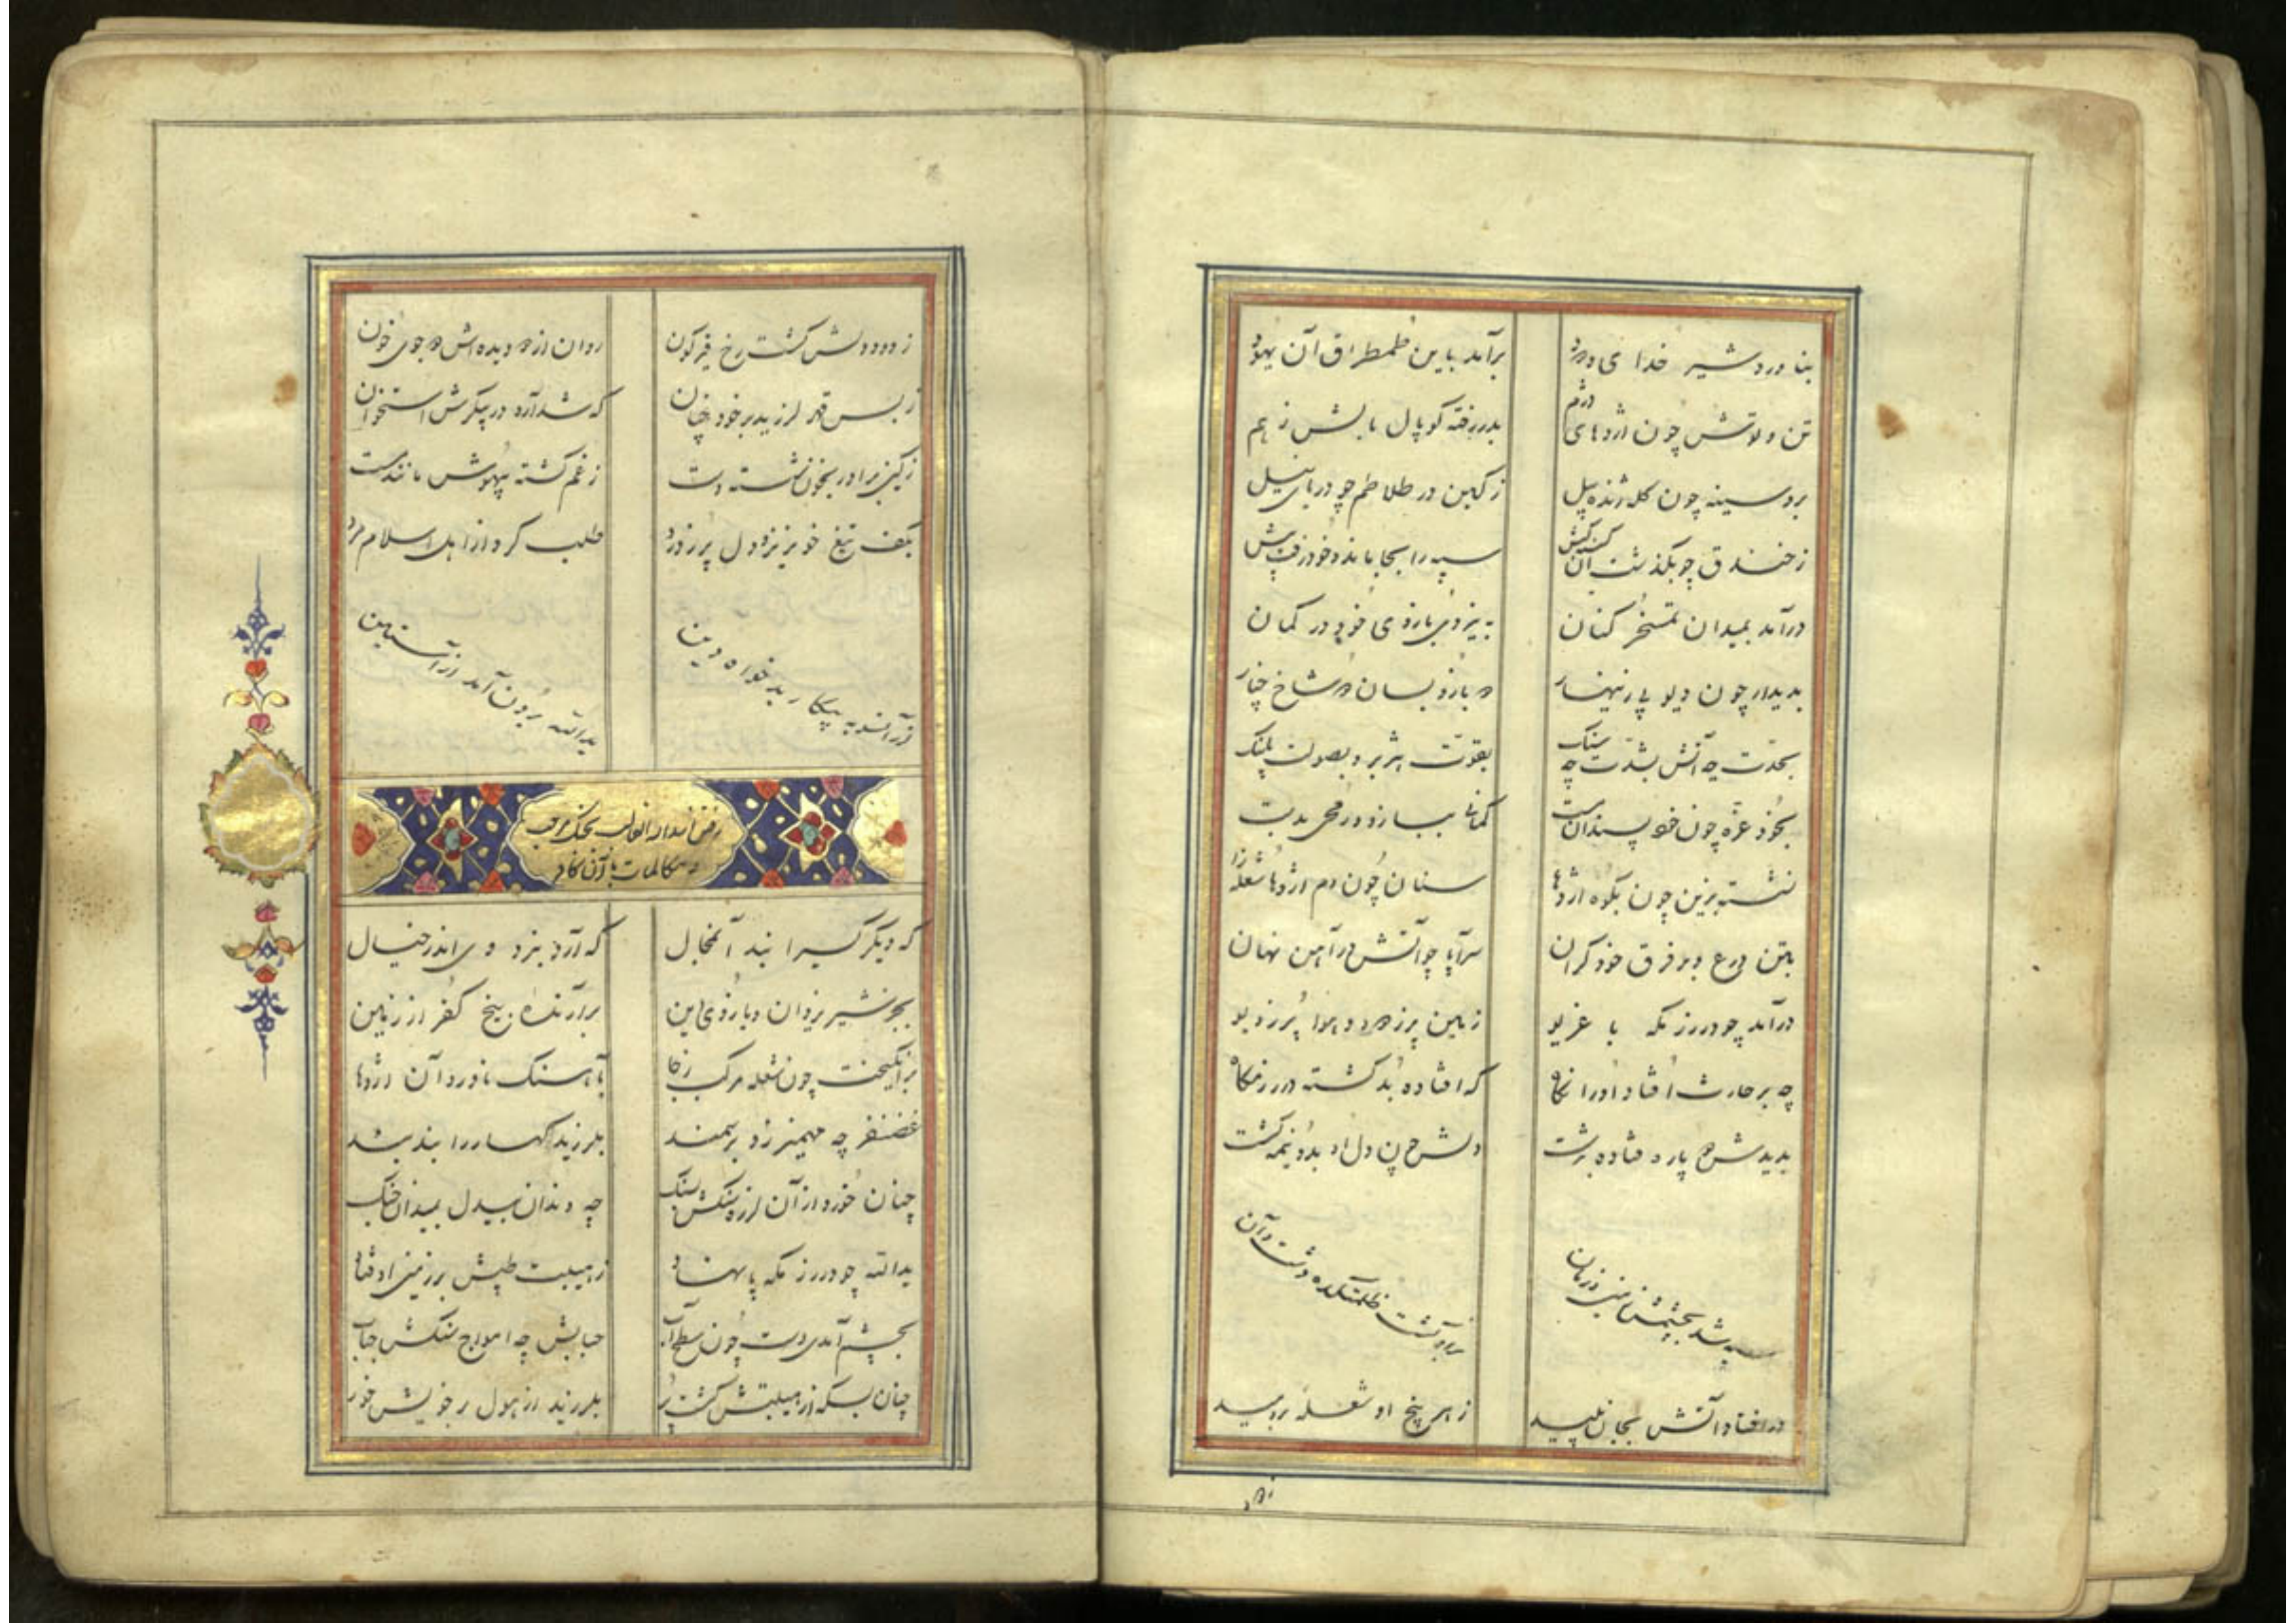 بناورد شیر خدای ودود
برآمد باین طمطراق آن یهود
تن و توشش چون اژدهای دژم
بدر رفته کوپال یالش ز هم
بر و سینه چون کله ژنده پیل
ز کین در تلاطم چو دریای نیل
ز خندق چو بگذشت آن
سپه را بجا ماند و خود رفت پیش
درآمد بمیدان تمسخر کنان
به نیروی بازوی خود در کمان
بدیدار چون دیو پر زینهار
دو بازو بسان دو شاخ چنار
بحدت چه آتش بشدت چه سنک
بقوت هژبر و بصولت پلنک
بخود غره چون خود پسندان مست
کمانی ببازو و رمحی بدست
نشسته بزین چون بکوه اژدها
سنان چون دم اژدها شعله زا
بتن درع و بر فرق خود کران
سراپا چو آتش در آهن نهان
درآمد چو در رزمکه با غریو
زمین پر ز دد و هوا پر ز دیو
چه بر حارث افتاد او را نکاه
که افتاده بد کشته در رزمکاه
بدیدش دو پاره فتاده بدشت
دلش همچون دل او بدو نیمه کشت
سیه شد بچشمش زمین و زمان
بر او کشت ظلمتکده دشت و آن
در افتاد آتش بجان پلید
ز هر بیخ او شعله بر دمید
ز دود
ز دود دلش کشت رخ قیرکون
روان از دو دیده‌اش دو جوی خون
ز بس قهر لرزید بر خود چنان
که شد آره در پیکرش استخوان
ز کین برادر بخون شسته دست
ز غم کشته بیهوش مانند مست
بکف تیغ خونریز و دل پر ز درد
طلب کرد از اهل اسلام مرد
از آنسو به پیکار بدخواه دین
یدالله برون آمد از آستین
رفتن اسدالله الغالب بجنک مرحب
و مکالمات با آن کافر
که دیکر کسیرا نبد آنمجال
که آرد نبرد وی اندر خیال
بجز شیر یزدان و بازوی دین
برآرنده بیخ کفر از زمین
برانکیخت چون شعله مرکب ز جا
بآهنک ناورد آن اژدها
غضنفر چه مهمیز زد بر سمند
بلرزید کهسار را بند بند
چنان خورد از آن لرزه سنکش بسنک
چه دندان بیدل بمیدان جنک
یدالله چو در رزمکه پا نهاد
ز هیبت طپش بر زمین اوفتاد
بچشم آمدی دشت چون سطح آب
حبابش چه امواج سنکش حباب
چنان بسکه از هیبتش کشت پر
بلرزید از هول بر خویش خور